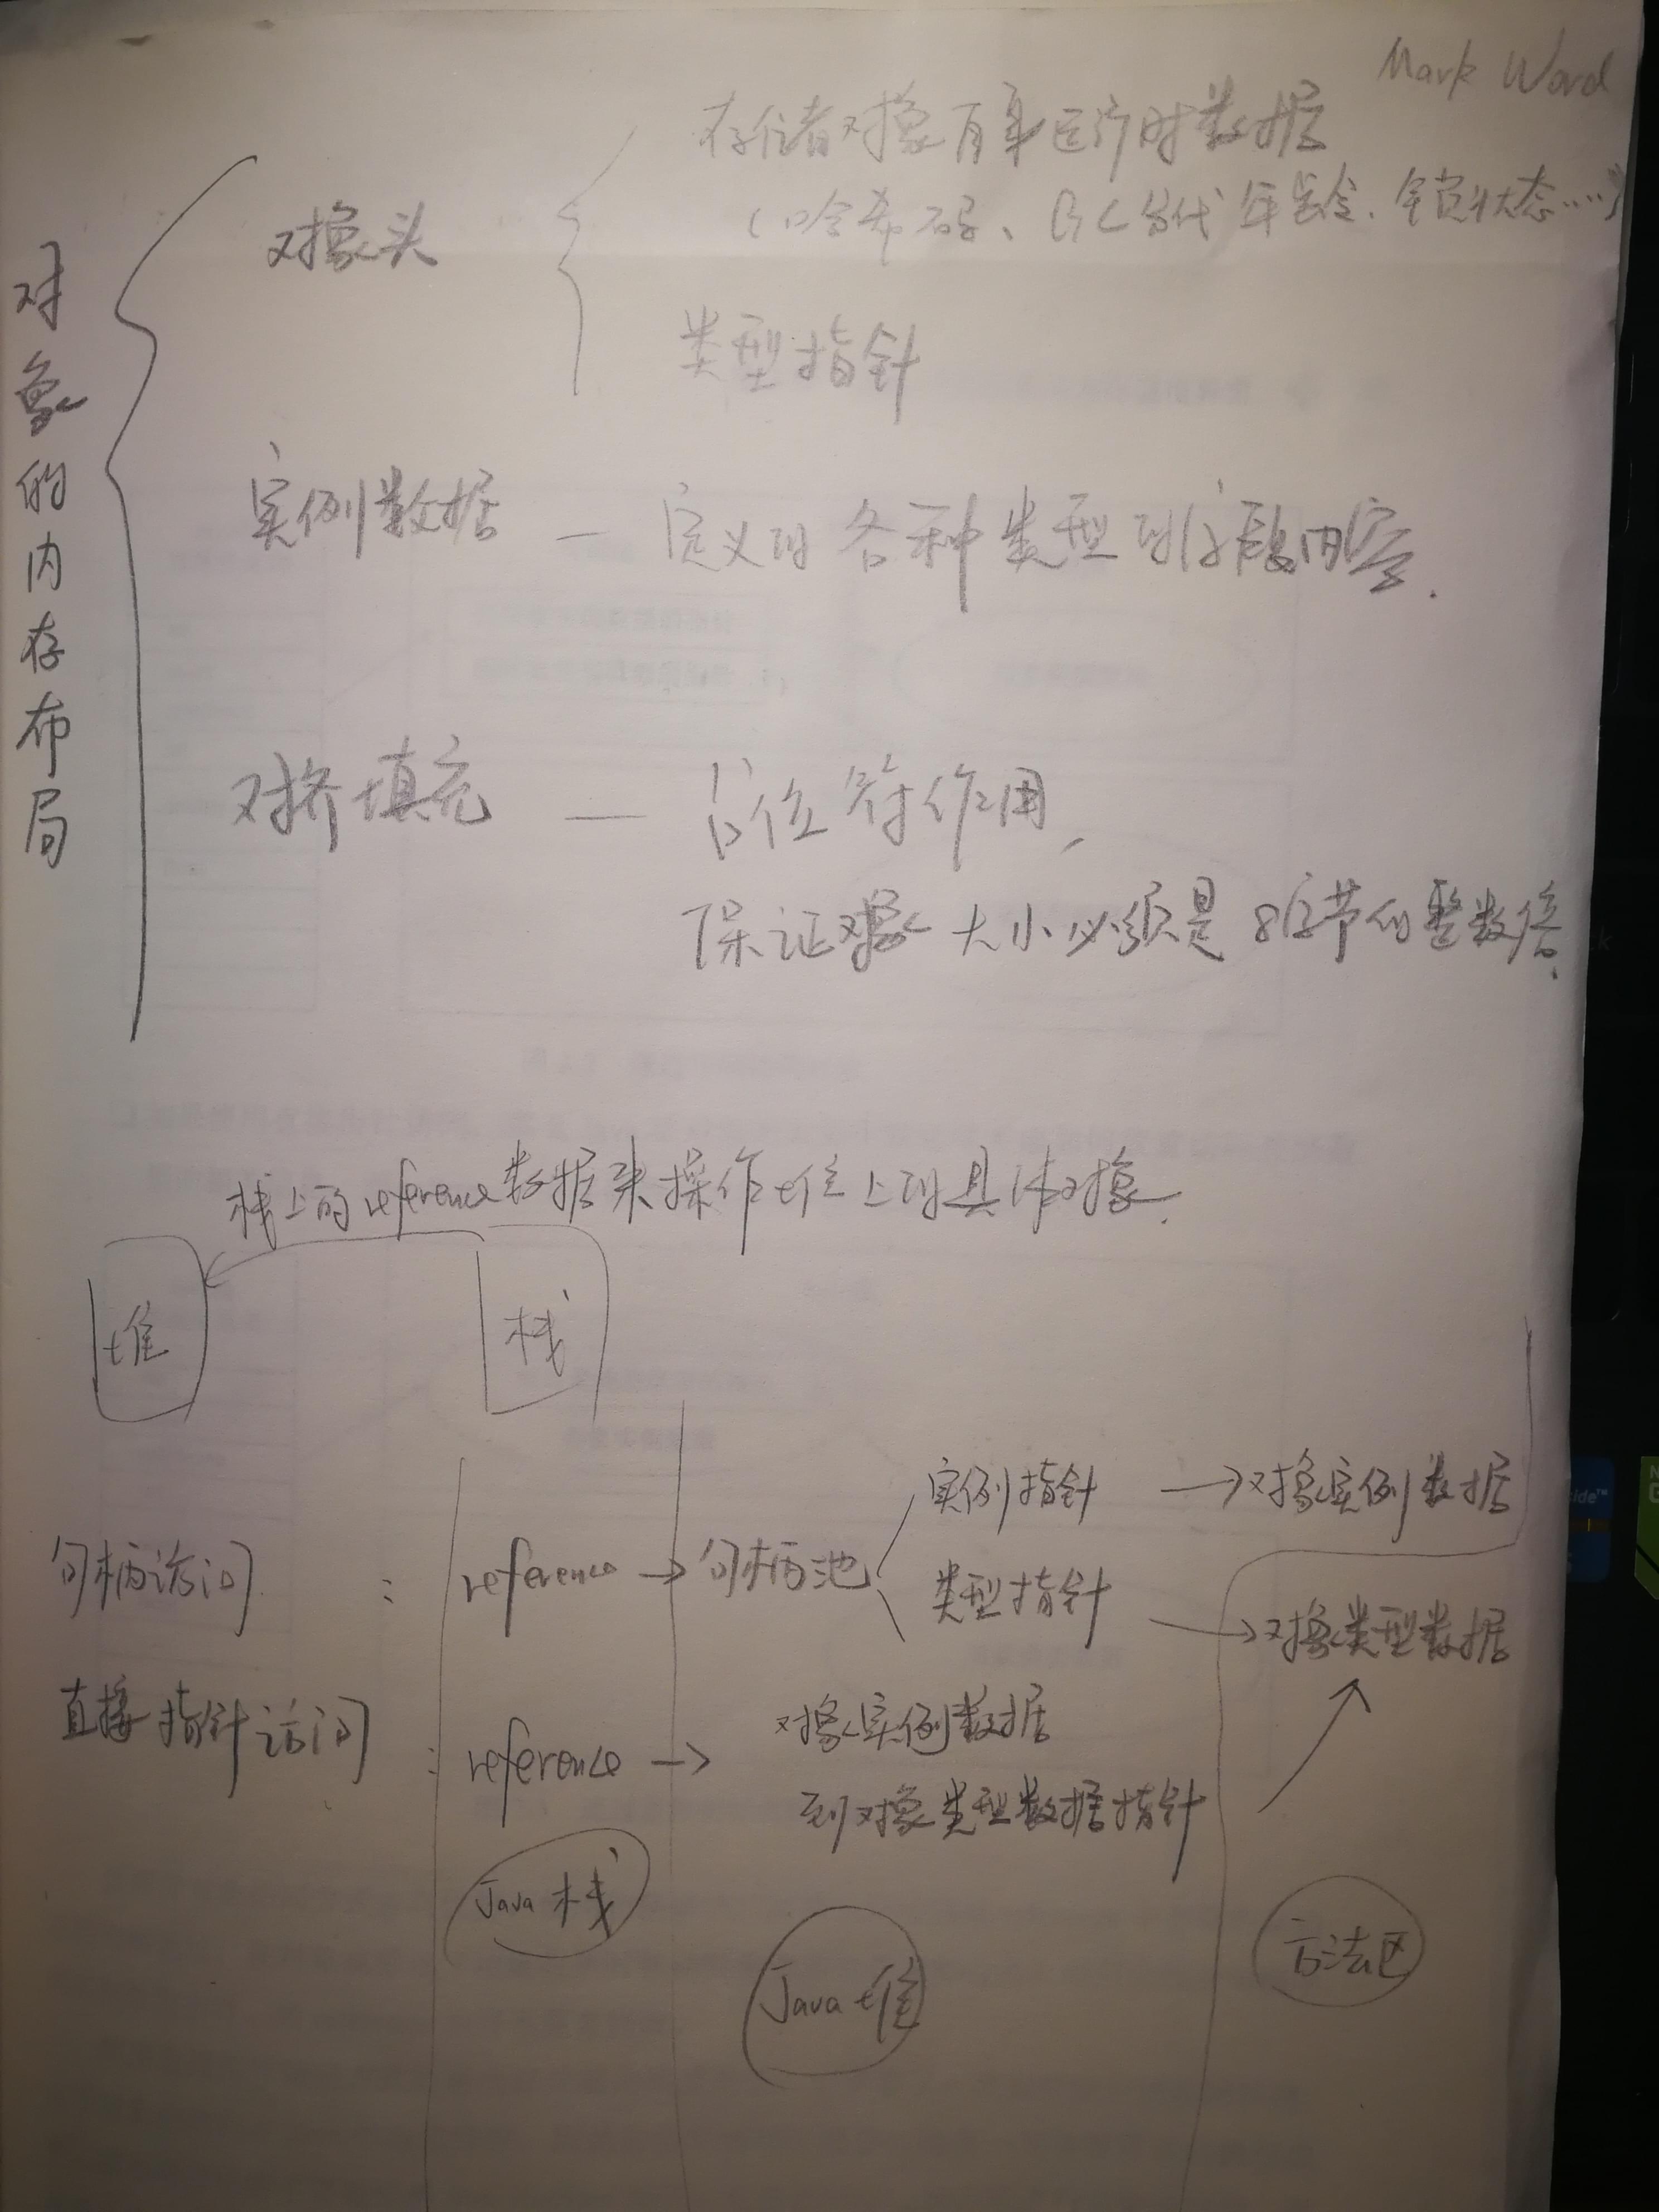 Mark Word
存储着对象自身运行时数据
（哈希码、GC分代年龄、锁状态……）
对象头
类型指针
对象的内存布局
实例数据 — 定义的各种类型的字段内容.
对齐填充 — 占位符作用,
保证对象大小必须是8字节的整数倍.
栈上的reference数据来操作堆上的具体对象.
堆 栈
实例指针 → 对象实例数据
句柄访问 : reference → 句柄池
类型指针 → 对象类型数据
直接指针访问 : reference → 对象实例数据
到对象类型数据指针
Java 栈
Java 堆
方法区